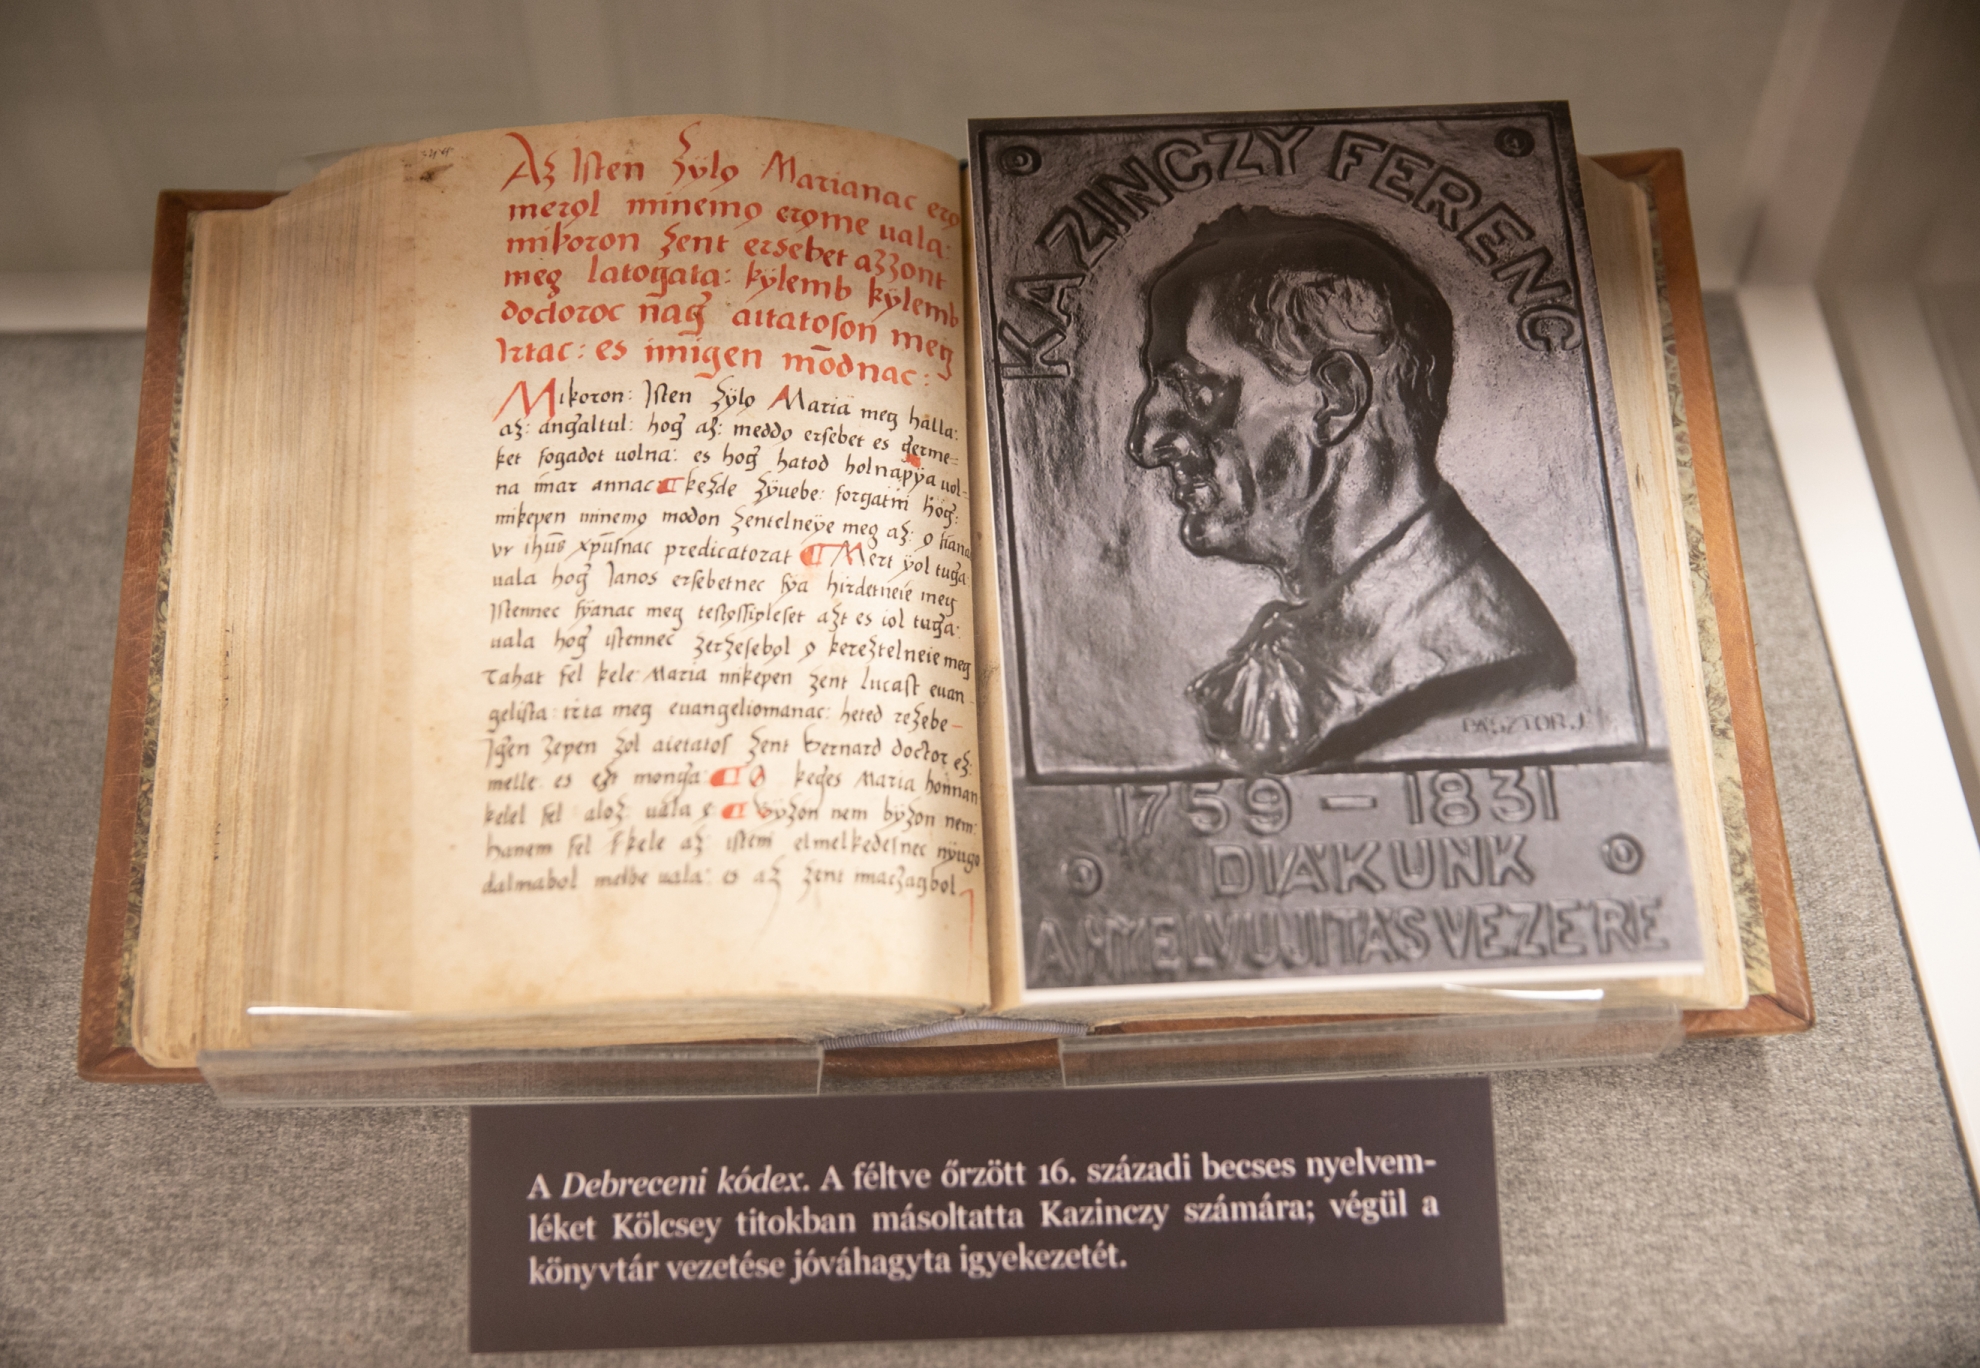 Aȥ Iſten ȥÿlo Marianac ero
merol minemo erome uala:
mikoron ȥent ersebet aȥȥont
meg latogata: kÿlemb kÿlemb
doctoroc nag̃ aitatoson meg
Irtac: es imigen modnac:
Mikoron: Iſten ȥÿlo Maria meg halla:
aȥ: angaltul: hog̃ aȥ: meddo erſebet es germe=
ket fogadot uolna: es hog̃ hatod holnapÿa uol-
na imar annac keȥde ȥÿuebe: forgatni hog̃:
mikepen minemo modon ȥentelneÿe meg aȥ: o fiana
vr ihus xpusnac predicatorat Mert ÿol tug̃a:
uala hog̃ Ianos erſebetnec fÿa hirdetneie meg
Iſtennec fÿanac meg aȥt es iol tug̃a:
uala hog̃ iſtennec ȥerȥeſebol o kereȥtelneie meg
Tahat fel kele: Maria mikepen ȥent lucaſt euan
geliſta irta meg euangeliomanac: heted reȥebe-
Ig̃en ȥepen ȥol aietatoſ ȥent Bernard doctor eȥ:
melle es eȥt mong̃a: O keg̃es Maria honnan
kelel fel aloȥ: uala e Bÿȥon nem bÿȥon nem:
hanem fel kele aȥ iſteni elmelkedeſnec nÿugo
dalmabol melbe uala: es aȥ ȥent
KAZINCZY FERENC
PÁSZTOR.J.
1759 – 1831
DIÁKUNK
A NYELVUJITÁS VEZÉRE
A Debreceni kódex. A féltve őrzött 16. századi becses nyelvem-
léket Kölcsey titokban másoltatta Kazinczy számára; végül a
könyvtár vezetése jóváhagyta igyekezetét.